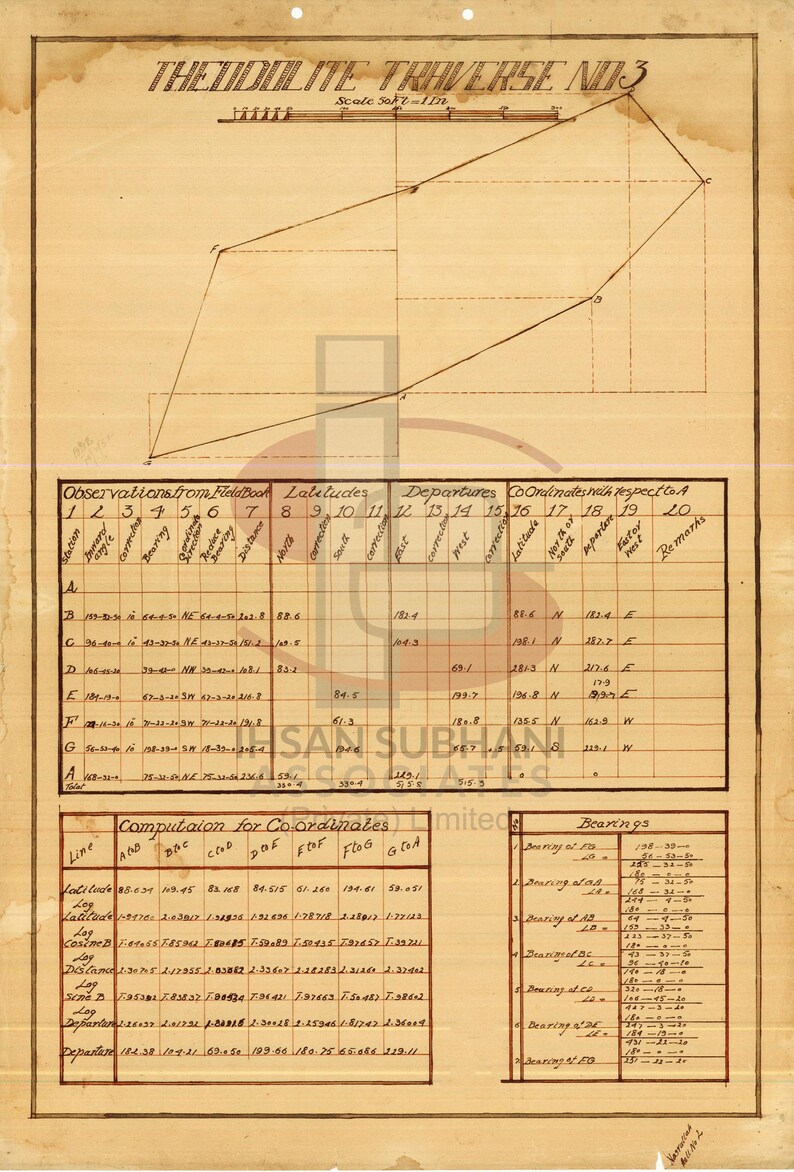 THEODOLITE TRAVERSE NO 3
Scale 50Ft = 1In
C
F
B
A
G
Observations from Field Book Latitudes Departures CoOrdinates with respect to A
1 2 3 4 5 6 7 8 9 10 11 12 13 14 15 16 17 18 19 20
Station Inward angle Correction Bearing Coordinate Direction Reduce Bearing Distance North Correction South Correction East Correction West Correction Latitude North or South Departure East or West Remarks
A
B 159-33-50 10 64-4-50 NE 64-4-50 202.8 88.6 182.4 88.6 N 182.4 E
C 96-40-0 10 43-37-50 NE 43-37-50 151.2 109.5 104.3 198.1 N 287.7 E
D 106-45-20 39-42-0 NW 39-42-0 108.1 83.2 69.1 281.3 N 217.6 E
17.9
E 184-19-0 67-3-20 SW 67-3-20 216.8 84.5 199.7 196.8 N E
F 10 71-22-20 SW 71-22-20 191.8 61.3 180.8 135.5 N 162.9 W
G 56-53-40 10 198-39-0 SW 18-39-0 205.4 194.6 65.7 59.1 S 229.1 W
A 168-32-0 75-32-50 NE 75-32-50 236.6 59.1 229.1 0 0
Total 330.4 515.8 515.3
IHSAN SUBHANI
ASSOCIATES
(Private) Limited
Computaion for Co-ordinates
Line A to B B to C C to D D to E E to F F to G G to A
Latitude 88.634 109.45 83.168 84.515 61.260 194.61 59.051
Log
Latitude 1.94760 2.03917 1.92696 1.78718 2.28917 1.77123
Log
Cosine B T.64055 T.85962 T.59089 T.50435 T.97657 T.39721
Log
Distance 2.30705 2.17955 2.33607 2.28283 2.31260 2.37402
Log
Sine B T.95392 T.83837 T.96421 T.97663 T.50487 T.98602
Log
Departure 2.26097 2.01792 2.30028 2.25946 1.81747 2.36004
Departure 182.38 104.21 69.050 199.66 180.75 65.686 229.11
No Bearings
1 Bearing of FG 198-39-0
LG = 56-53-50
255-32-50
180-0-0
2 Bearing of GA 75-32-50
LA = 168-32-0
244-4-50
180-0-0
3 Bearing of AB 64-4-50
LB = 159-33-0
223-37-50
180-0-0
4 Bearing of BC 43-37-50
LC = 96-40-10
140-18-0
180-0-0
5 Bearing of CD 320-18-0
LD = 106-45-20
427-3-20
180-0-0
6 Bearing of DE 247-3-20
LE = 184-19-0
431-22-20
180-0-0
7 Bearing of FG 251-22-20
Roll No 2